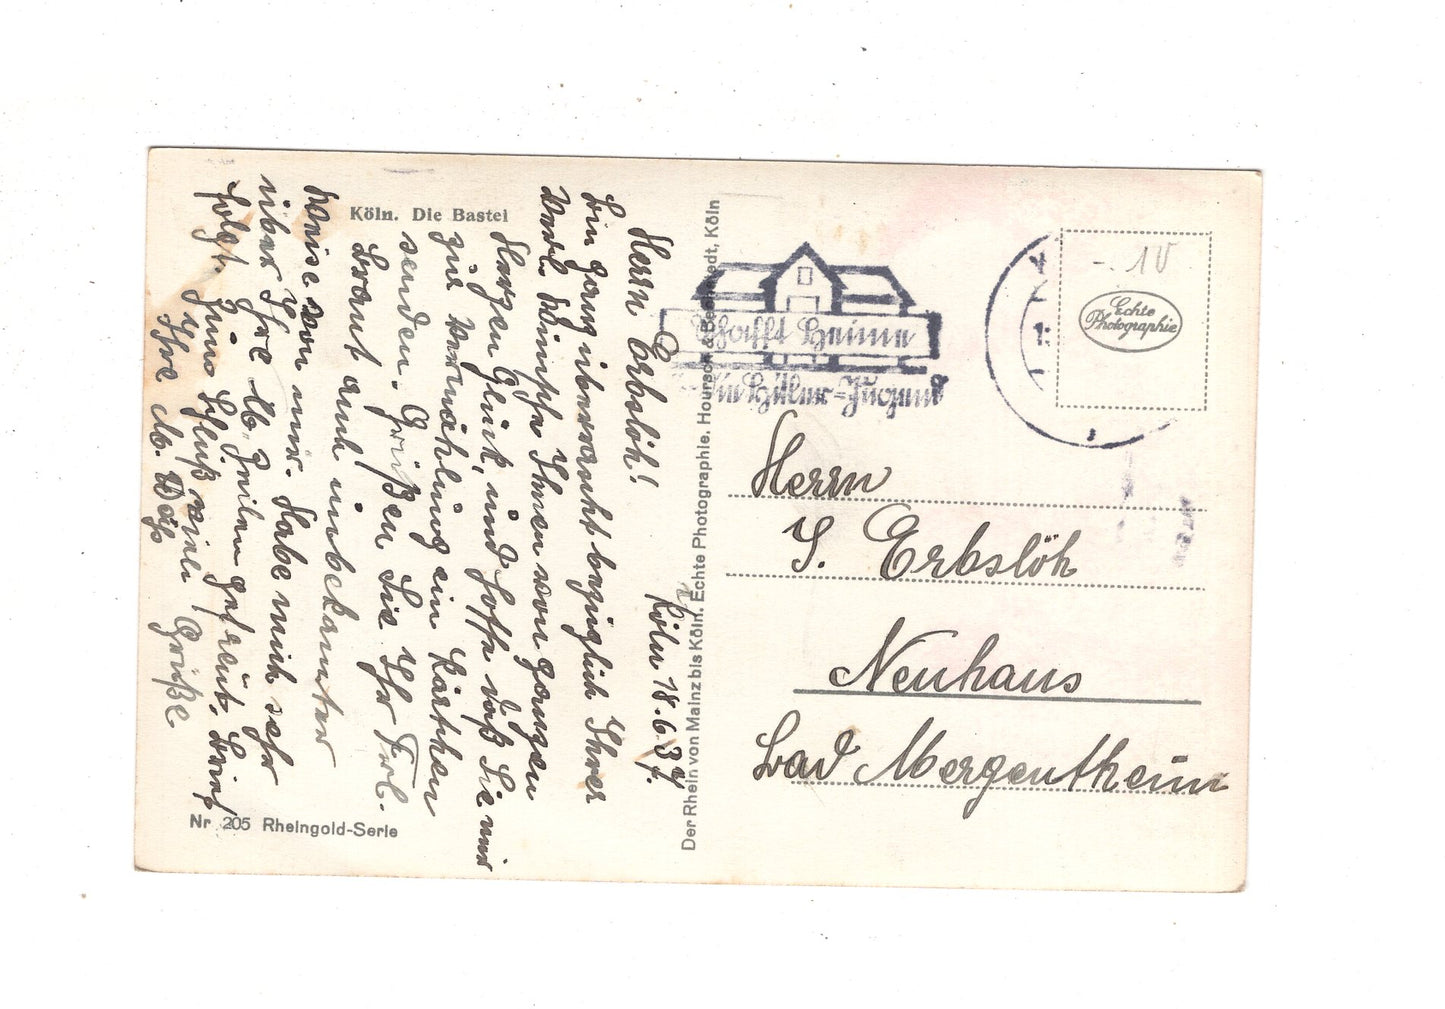 Köln. Die Bastei
Köln 18.6.37.
Herrn Erbslöh!
Bin ganz überrascht bezüglich Ihrer
Verl. Wünsche Ihnen von ganzen
Herzen Glück, und hoffe daß Sie mir
zur Vermählung ein Kärtchen
senden. Grüßen Sie Ihr Frl.
Braut auch unbekannter
weise von mir. Habe mich sehr
über Ihre Zeilen gefreut. Brief
folgt. Zum Schluß viele Grüße
Ihre M.
Nr 205 Rheingold-Serie
Der Rhein von Mainz bis Köln. Echte Photographie. Hoursch & Bechstedt, Köln
Schafft Heime
Hitler-Jugend
-. 10
Echte
Photographie
Herrn
J. Erbslöh
Neuhaus
Bad Mergentheim